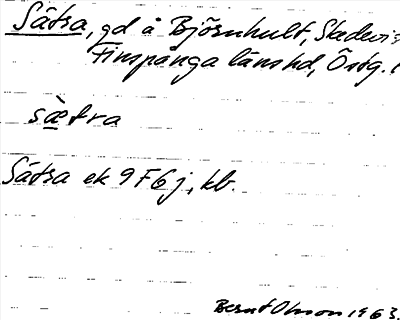 Sätra, gd å Björnhult, Skedevi s
Finspånga länshd, Östg. l
sæ̀tra
Sätra ek 9F6j, kb.
Bernt Olsson 1963.